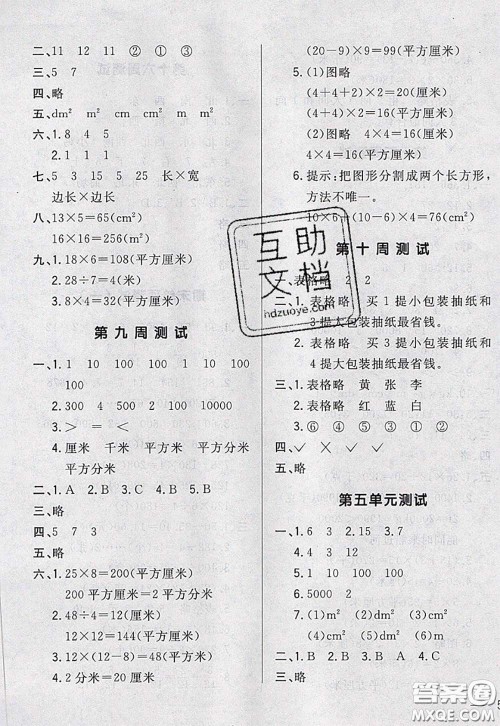 二、11 12 11 ② ① ③
三、5 7
四、略
五、dm² m² cm cm² m m²
六、1.8 4 5
2.1 1 1
七、5 3 15 5 25 长×宽
边长×边长
八、13×5=65(cm²)
16×16=256(cm²)
九、1.18×6=108(平方厘米)
2.28÷7=4(米)
3.8×4=32(平方厘米)
第九周测试
一、1.1 10 100 100 1 10 100
100
2.300 4 500 2 100 10000
3.> < > = < =
4.厘米 千米 平方米 平方厘米
平方分米
二、1.A 2.B 3.C 4.B 5.B
三、略
四、5 7 3
五、略
六、1.25×8=200(平方厘米)
200平方厘米=2平方分米
2.48÷4=12(厘米)
12×12=144(平方厘米)
3.12×(12-8)=48(平方厘米)
4.2分米=20厘米
(20-9)×9=99(平方厘米)
5.(1)图略
(4+4+2)×2=20(厘米)
4×(2+2)=16(平方厘米)
(2)图略
4×4=16(厘米)
4×4=16(平方厘米)
6.提示:把图形分割成两个长方形,
方法不唯一。
10×6+(10-6)×4=76(cm²)
第十周测试
一、表格略 2 2
二、1.表格略 买1提小包装抽纸和
3提大包装抽纸最省钱。
2.表格略 买3提小包装抽纸和
4提大包装抽纸最省钱。
三、1.表格略 黄 张 李
2.表格略 红 蓝 白
3.⑥ ④ ⑤ ③ ① ②
四、✓ × ✓ ✓
五、略
第五单元测试
一、1.6 3 2.15 3.7
4.> < = <
5.1 10 100 100
6.5000 2
7.(1)m² (2)dm² (3)cm²
(4)cm² (5)dm (6)m²
二、1.B 2.B 3.B A 4.C
三、略
互助
文档
hdzuoye.com
答案圈
MXQE.COM